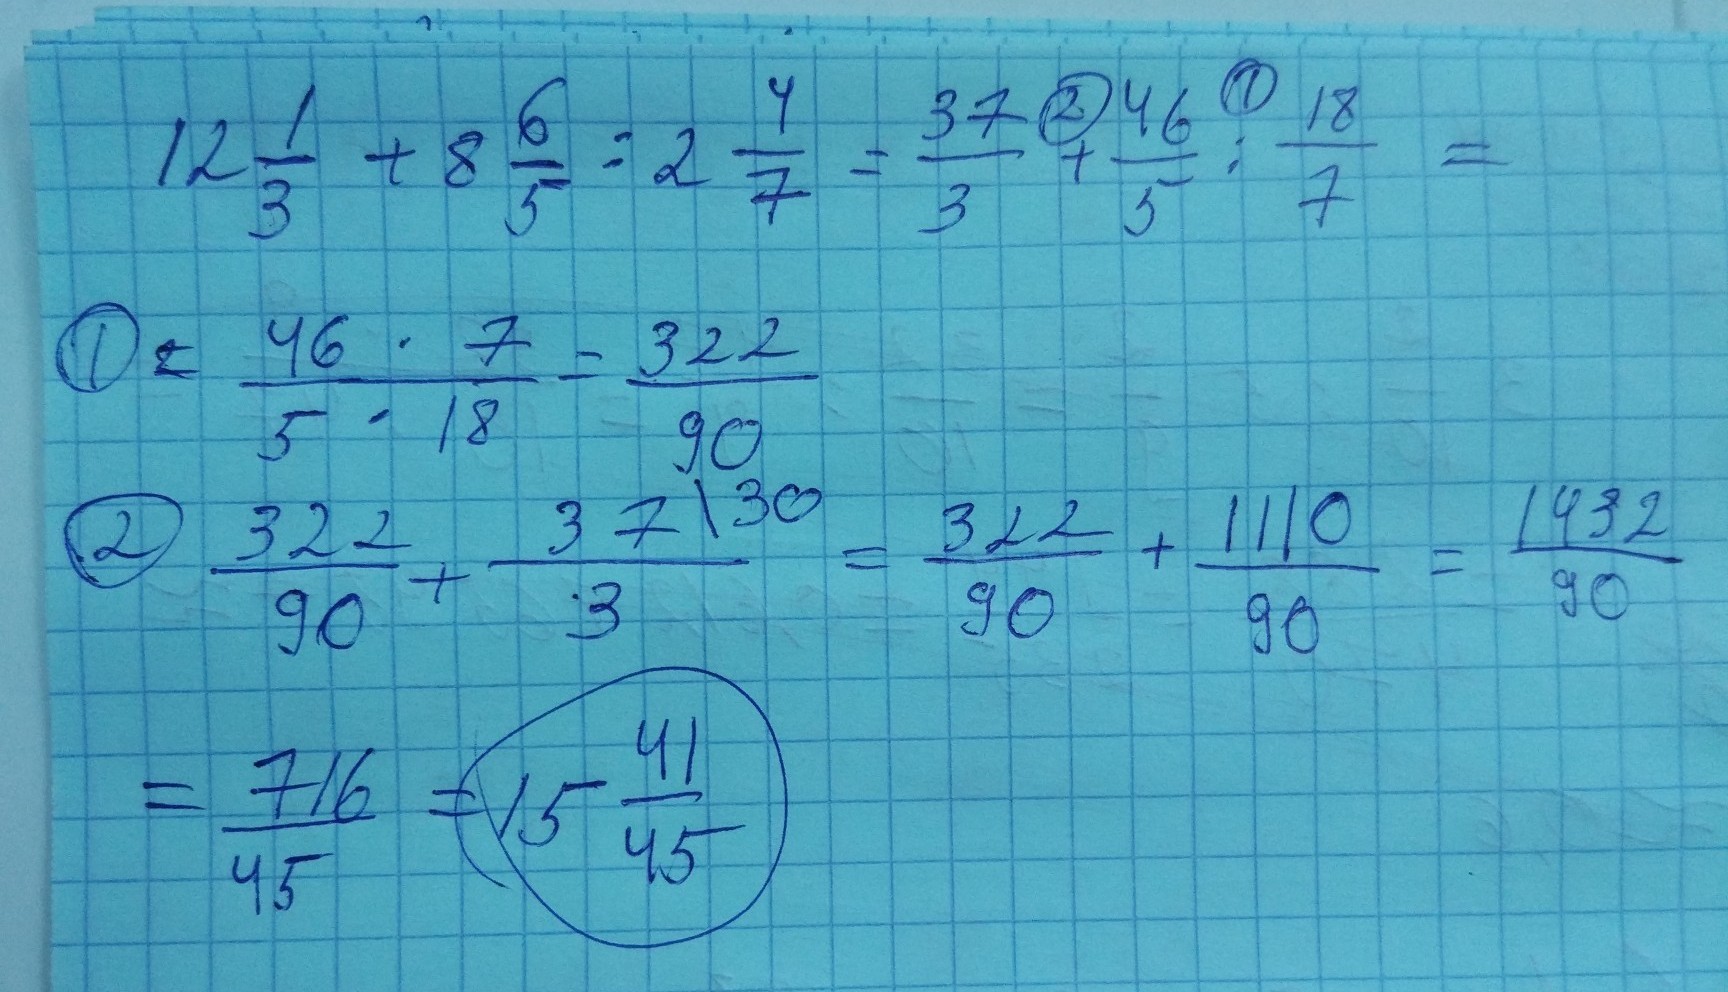 12 1/3 + 8 6/5 : 2 4/7 = 37/3 ② + 46/5 ① : 18/7 =
① = 46 · 7 / 5 · 18 = 322/90
② 322/90 + 37\30 / 3 = 322/90 + 1110/90 = 1432/90
= 716/45 = 15 41/45